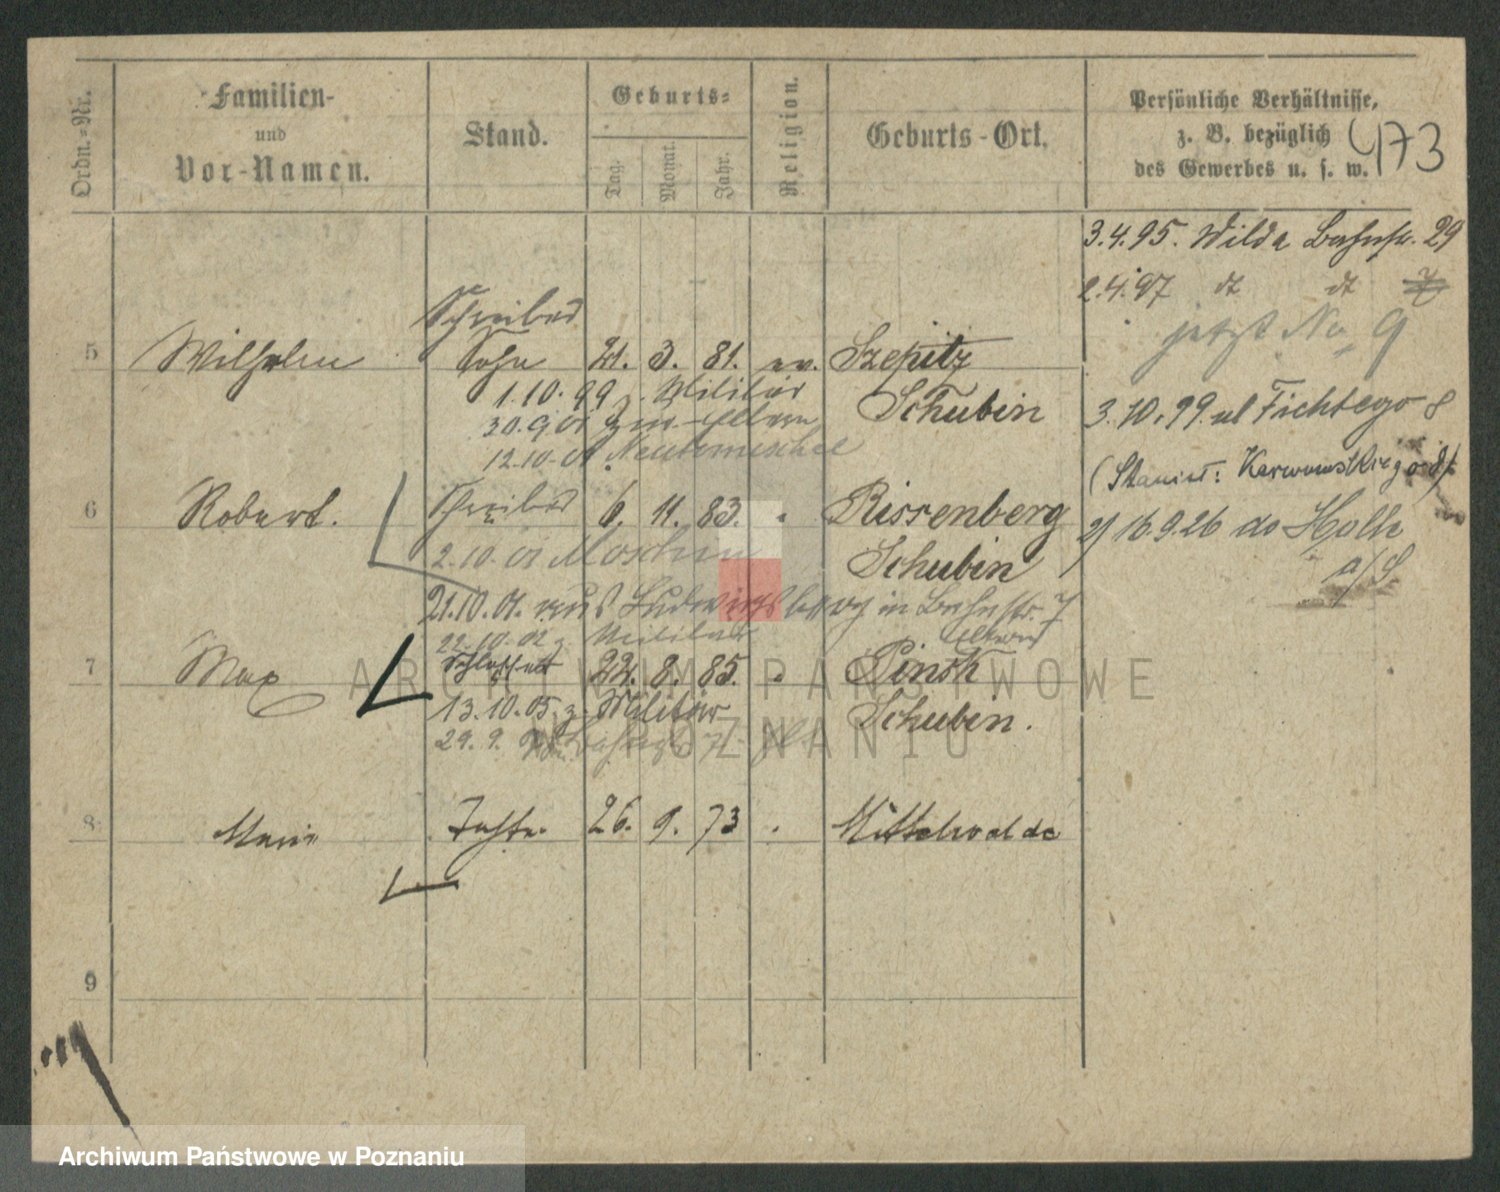 Ordn.=Nr.
Familien-
und
Vor-Namen.
Stand.
Geburts=
Tag.
Monat.
Jahr.
Religion.
Geburts-Ort.
Persönliche Verhältnisse,
z. B. bezüglich
des Gewerbes u. s. w.
473
3.4.95. Wilda Bahnstr. 29
2.4.97 dt dt 7
jetzt No 9
Schreiber
5 Wilhelm Sohn 21. 3. 81. ev. Szepitz
1.10.99 z. Militär Schubin
3.10.99. ul Fichtego 8
30.9.01 zu Eltern
12.10.01 Neutomischel
(Stanisł: Karwowskiego
6 Robert. Schreiber 6. 11. 83. Rissenberg
16.9.26 do
2.10.01 Moschin Schubin
21.10.01. aus Ludwigsberg in Bahnstr. 7
Eltern
22.10.02 z Militär
7 Max Schlosser 22. 8. 85. Pinsk
13.10.05 z. Militär Schubin.
29.9.
8 Marie Tochter 26. 9. 73 Mittelwalde
9
ARCHIWUM PAŃSTWOWE
W POZNANIU
Archiwum Państwowe w Poznaniu